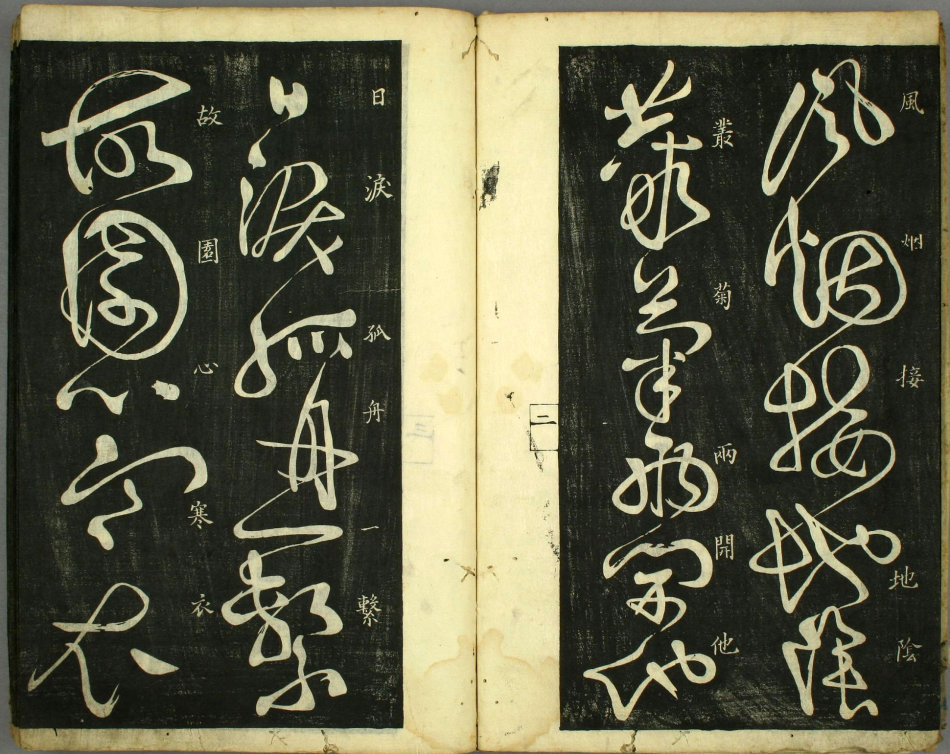 風烟接地陰
叢菊兩開他
二
日淚孤舟一繫
故園心寒衣
三